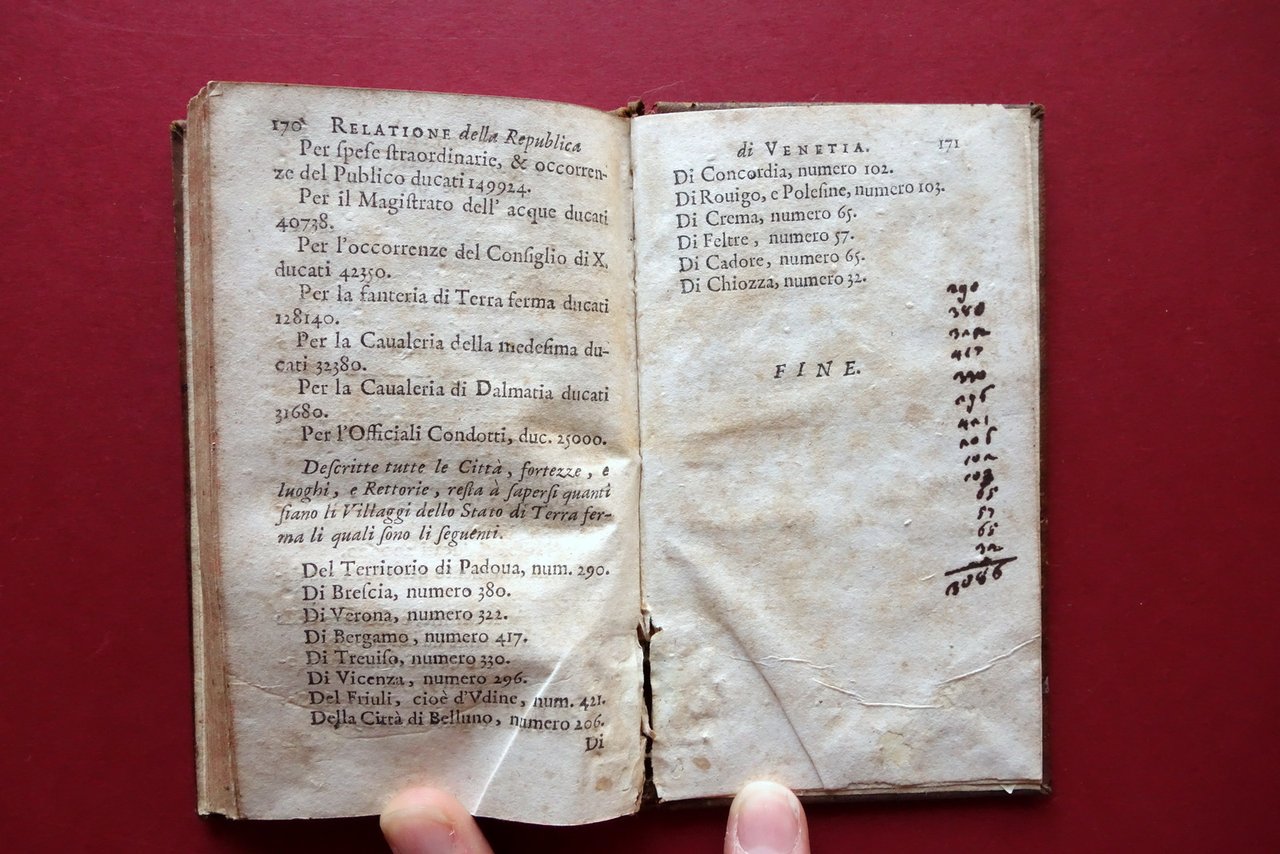 170 RELATIONE della Republica
Per ſpeſe ſtraordinarie, & occorren-
ze del Publico ducati 149924.
Per il Magiſtrato dell' acque ducati
40738.
Per l'occorrenze del Conſiglio di X,
ducati 42350.
Per la fanteria di Terra ferma ducati
128140.
Per la Caualeria della medeſima du-
cati 32380.
Per la Caualeria di Dalmatia ducati
31680.
Per l'Officiali Condotti, duc. 25000.
Deſcritte tutte le Città, fortezze, e
luoghi, e Rettorie, reſta à ſaperſi quanti
ſiano li Villaggi dello Stato di Terra fer-
ma li quali ſono li ſeguenti.
Del Territorio di Padoua, num. 290.
Di Breſcia, numero 380.
Di Verona, numero 322.
Di Bergamo, numero 417.
Di Treuiſo, numero 330.
Di Vicenza, numero 296.
Del Friuli, cioè d'Vdine, num. 421.
Della Città di Belluno, numero 206.
Di
di VENETIA. 171
Di Concordia, numero 102.
Di Rouigo, e Poleſine, numero 103.
Di Crema, numero 65.
Di Feltre, numero 57.
Di Cadore, numero 65.
Di Chiozza, numero 32.
FINE.
290
380
322
417
330
296
421
206
102
103
65
57
65
32
3086